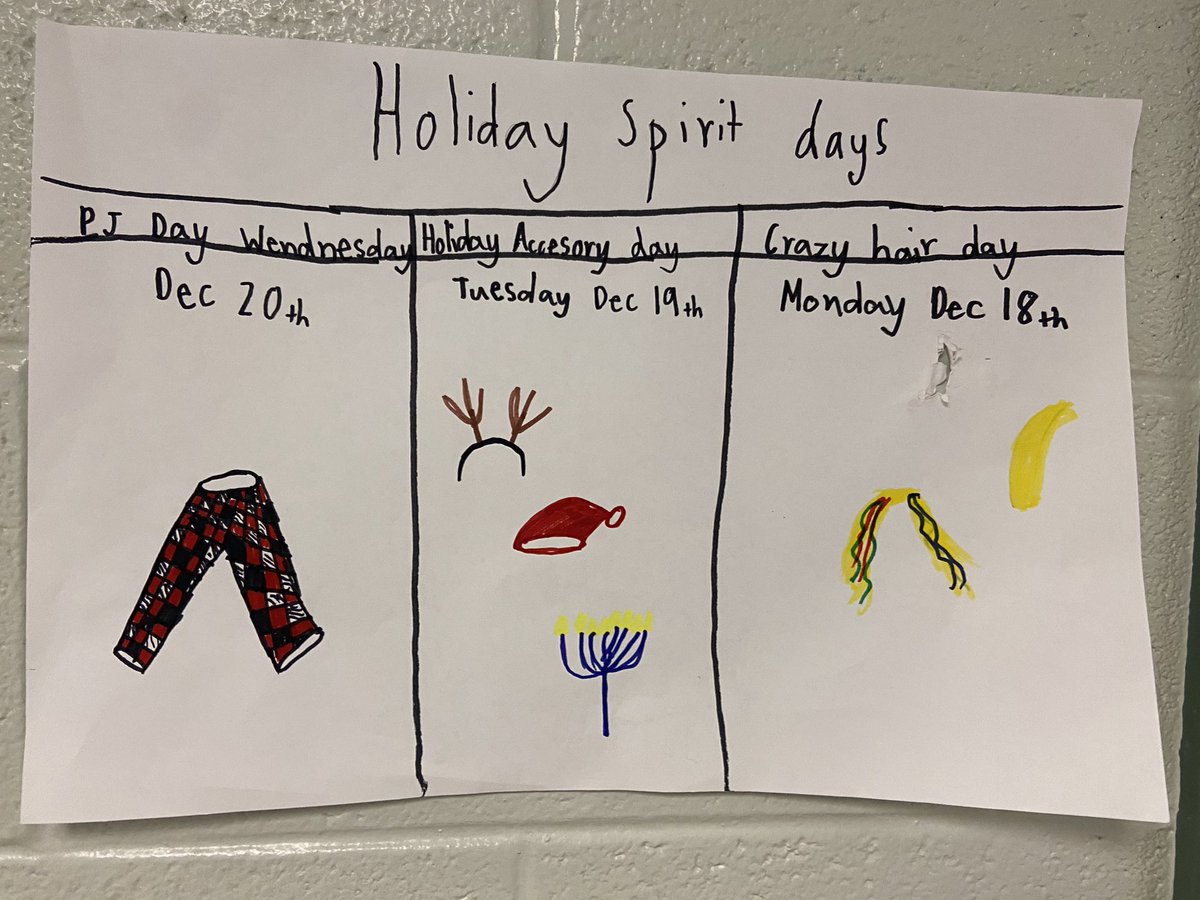 Holiday Spirit days
PJ Day Wendnesday
Dec 20th
Holiday Accesory day
Tuesday Dec 19th
Crazy hair day
Monday Dec 18th